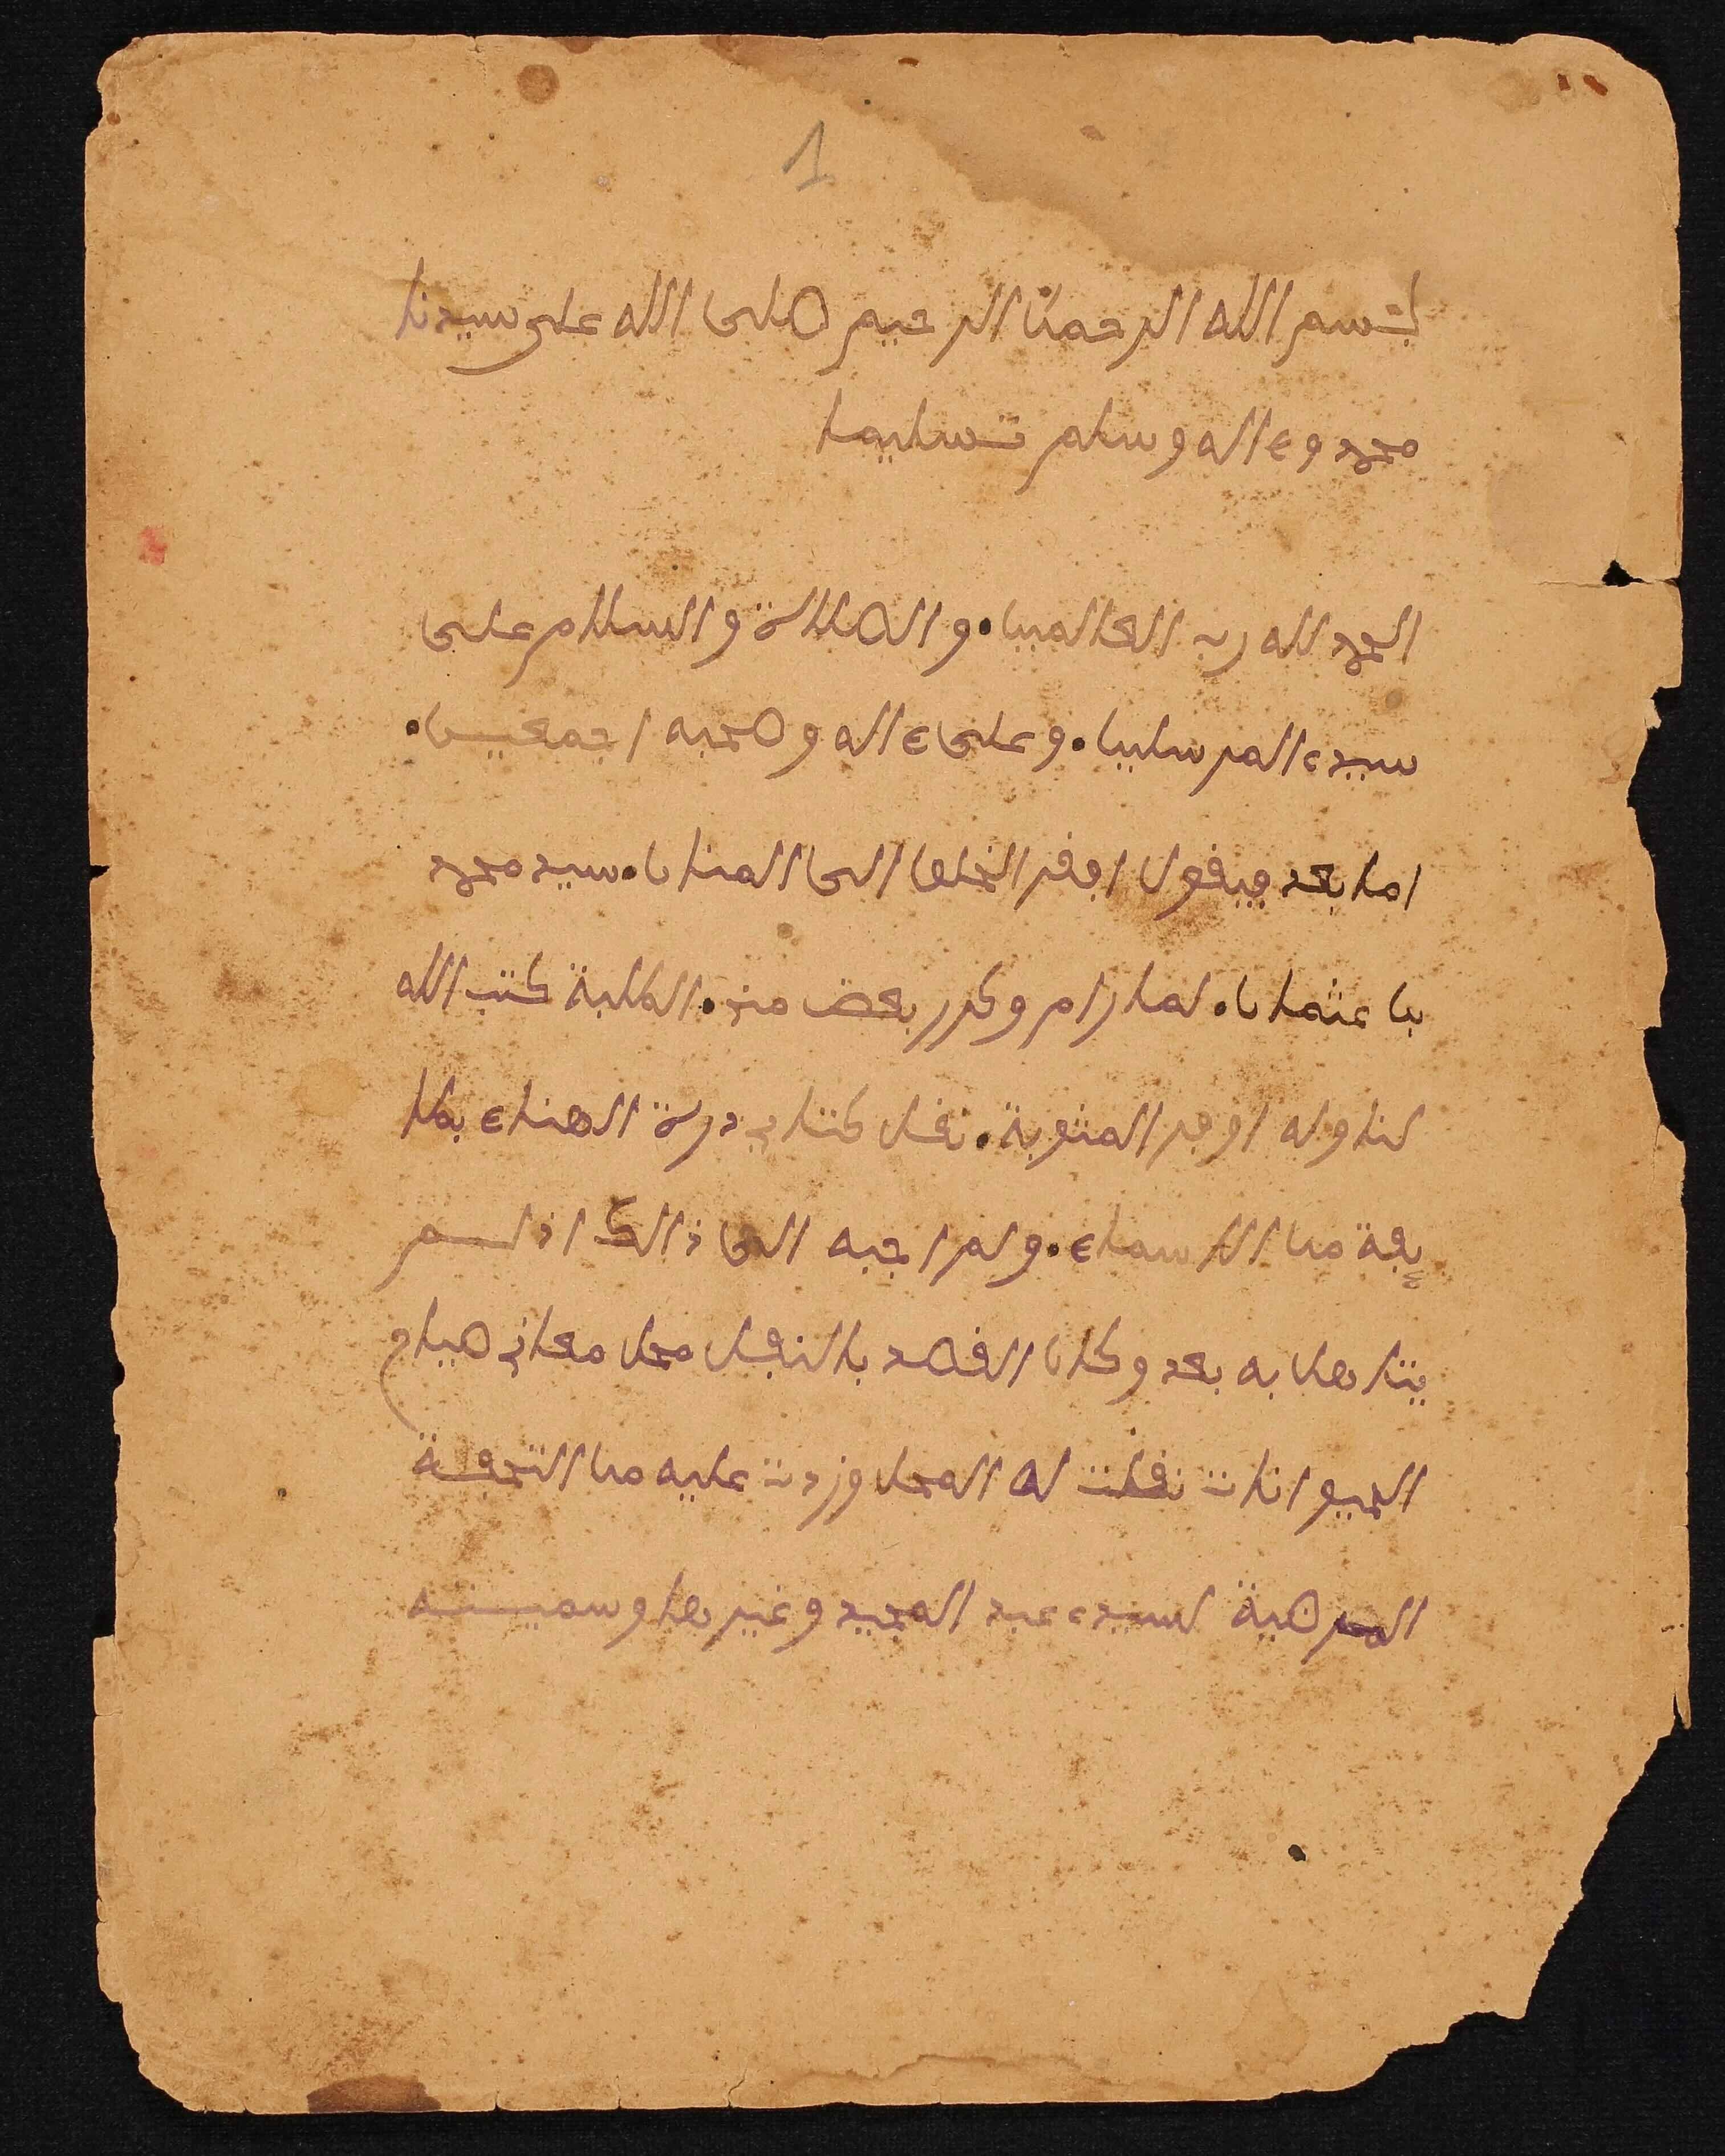 1
بسم الله الرحمن الرحيم صلى الله على سيدنا
محمد وءاله وسلم تسليما
الحمد لله رب العالمين. والصلاة والسلام على
سيدي المرسلين. وعلى ءاله وصحبه اجمعين.
اما بعد فيقول افقر الخلق الى المنان. سيد محمد
بن عثمان. لما رام وكرر بعض من. الطلبة كتب الله
لنا وله اوفر المثوبة. نقل كتاب درة الهناء بطا
ئفة من الاسماء. ولم اجبه الى ذالك اذ لم
يتاهل به بعد وكان القصد بالنقل محل معاني صياح
الحيوانات نقلت له المحل وزدت عليه من التحفة
المرضية لسيدي عبد المجيد وغيرها وسميته